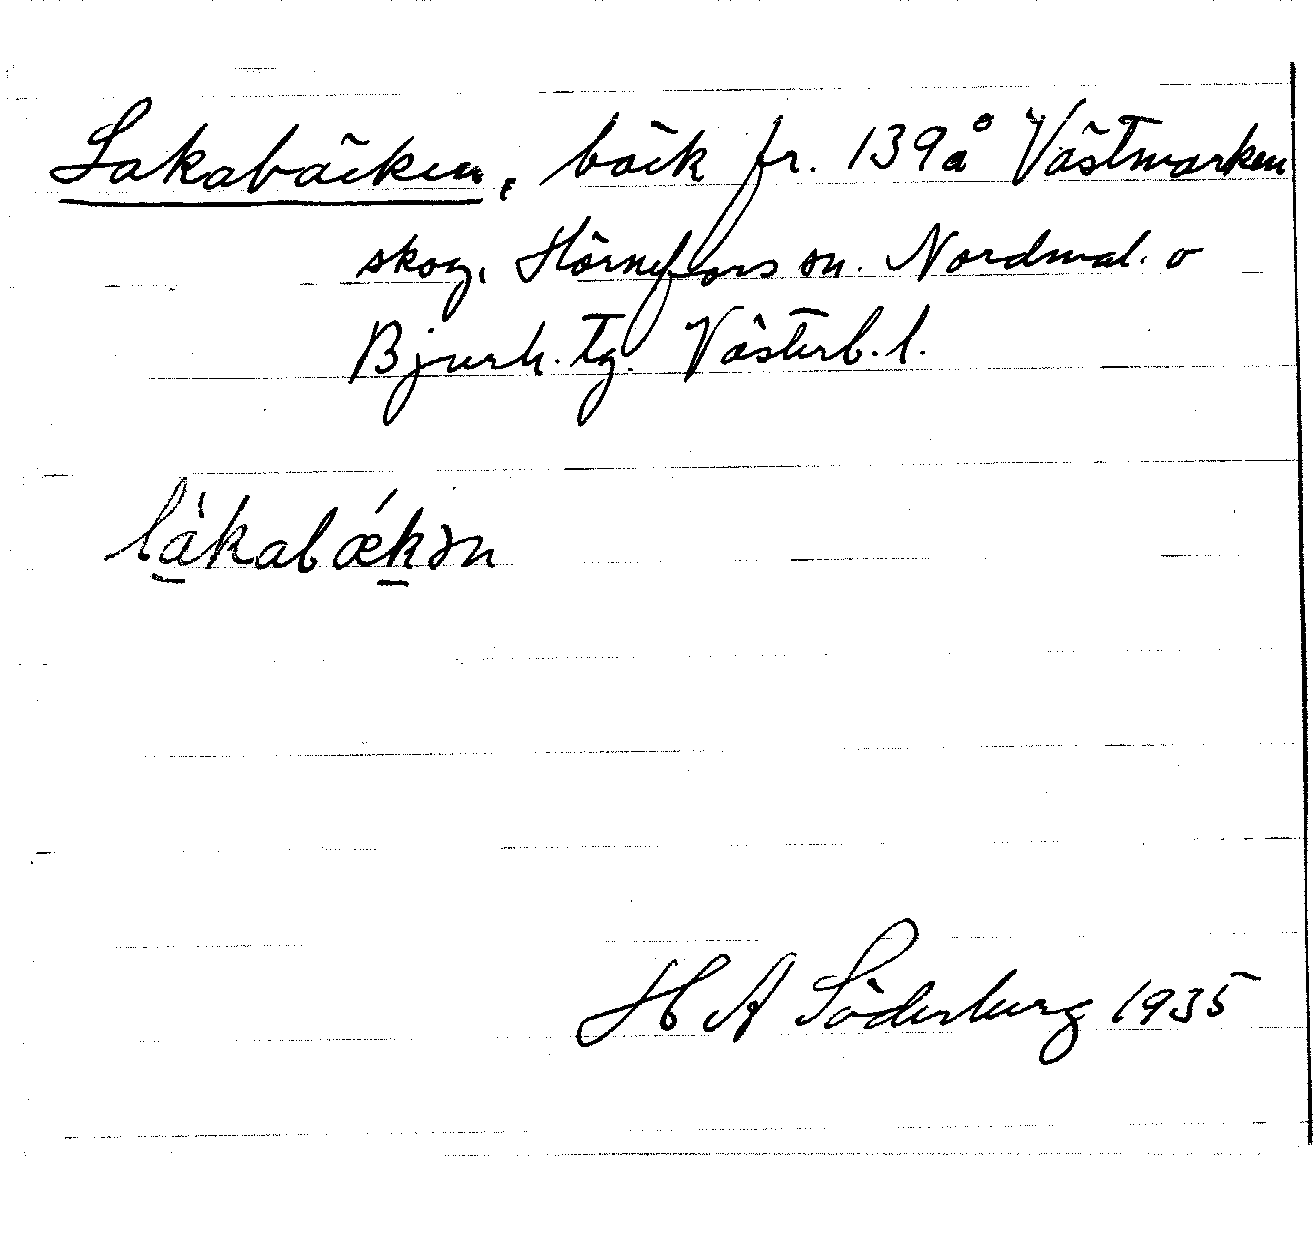 Lakabäcken, bäck fr. 139 å Västmarken
skog, Hörnefors sn. Nordmal. o
Bjurh. tg. Västerb. l.
làkabǽkən
H A Söderberg 1935